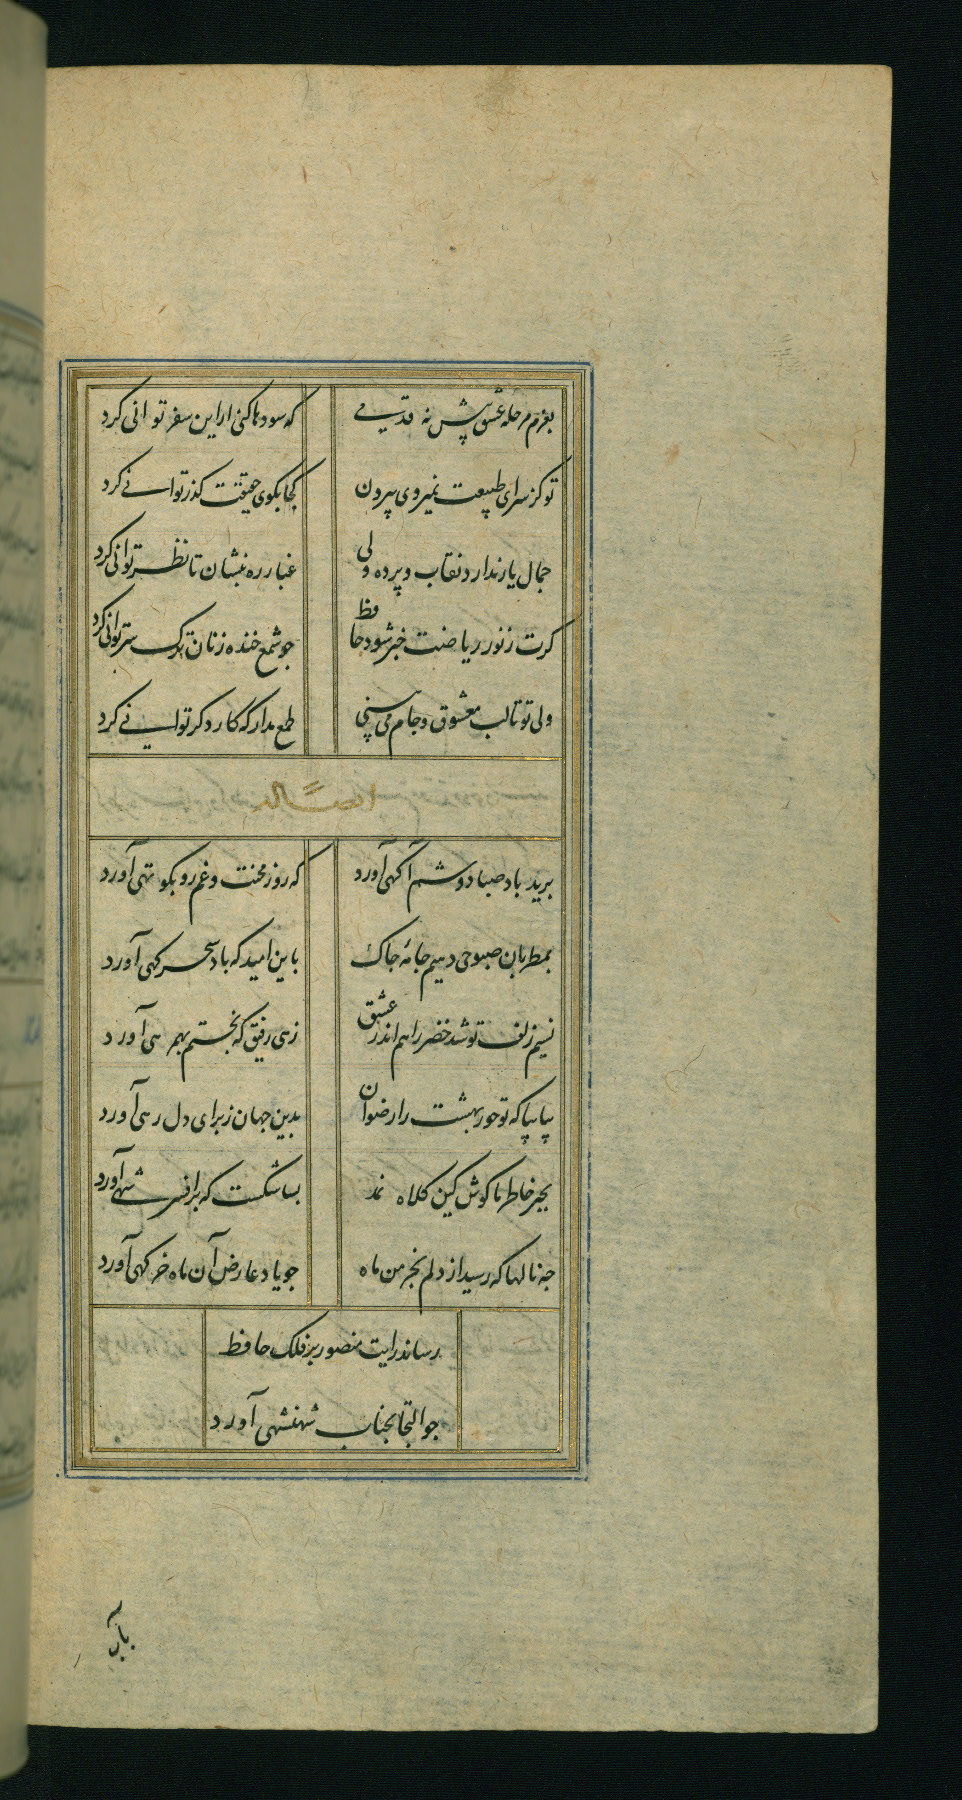 بعزم مرحله عشق پیش نه قدمی
که سودها کنی ار این سفر توانی کرد
تو کز سرای طبیعت نمیروی بیرون
کجا بکوی حقیقت کذر توانی کرد
جمال یار ندارد نقاب و پرده ولی
غبار ره بنشان تا نظر توانی کرد
کرت ز نور ریاضت خبر شود حافظ
جو شمع خنده زنان ترک سر توانی کرد
ولی تو تا لب معشوق و جام می
طمع مدار که کار دکر توانی کرد
ایضاً له
برید باد صبا دوشم آکهی آورد
که روز محنت و غم رو بکوتهی آورد
بمطربان صبوحی دهیم جامهٔ جاک
باین امید که باد سحرکهی آورد
نسیم زلف تو شد خضر راهم اندر عشق
زهی رفیق که بختم بهمرهی آورد
بیا بیا که تو حور بهشت را رضوان
بدین جهان ز برای دل رهی آورد
بجبر خاطر ما کوش کین کلاه نمد
بسا شکست که بر افسر شهی آورد
جه نالها که رسید از دلم بخرمن ماه
جو یاد عارض آن ماه خرکهی آورد
رساند رایت منصور بر فلک حافظ
جو التجا بجناب شهنشهی آورد